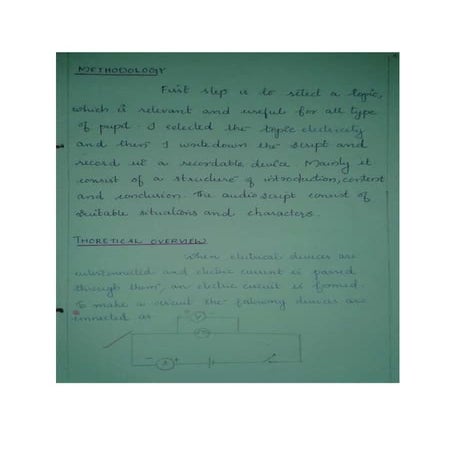 METHODOLOGY
First step is to select a topic,
which is relevant and useful for all type
of pupil. I selected the topic electricity
and then I write down the script and
record it a recordable device. Mainly it
consist of a structure of introduction, content
and conclusion. The audio script consist of
suitable situations and characters.
THORETICAL OVERVIEW
When electrical devices are
interconnected and electric current is passed
through them, an electric circuit is formed.
To make a circuit the following devices are
connected as
V
- A +